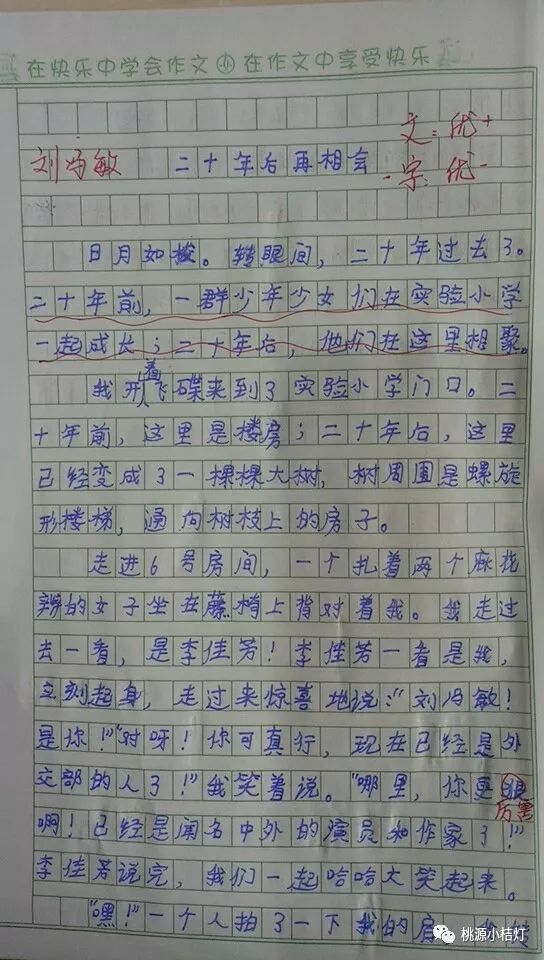 在快乐中学会作文 在作文中享受快乐
文:优+
刘冯敏 二十年后再相会
字:优-
日月如梭。转眼间，二十年过去了。
二十年前，一群少年少女们在实验小学
一起成长；二十年后，他们在这里相聚。
我开着飞碟来到了实验小学门口。二
十年前，这里是楼房；二十年后，这里
已经变成了一棵棵大树，树周围是螺旋
形楼梯，通向树枝上的房子。
走进6号房间，一个扎着两个麻花
辫的女子坐在藤椅上背对着我。我走过
去一看，是李佳芳！李佳芳一看是我，
立刻起身，走过来惊喜地说：“刘冯敏！
是你！”“对呀！你可真行，现在已经是外
交部的人了！”我笑着说。“哪里，你更
厉害
啊！已经是闻名中外的演员和作家了！”
李佳芳说完，我们一起哈哈大笑起来。
“嘿！”一个人拍了一下我的肩
桃源小桔灯